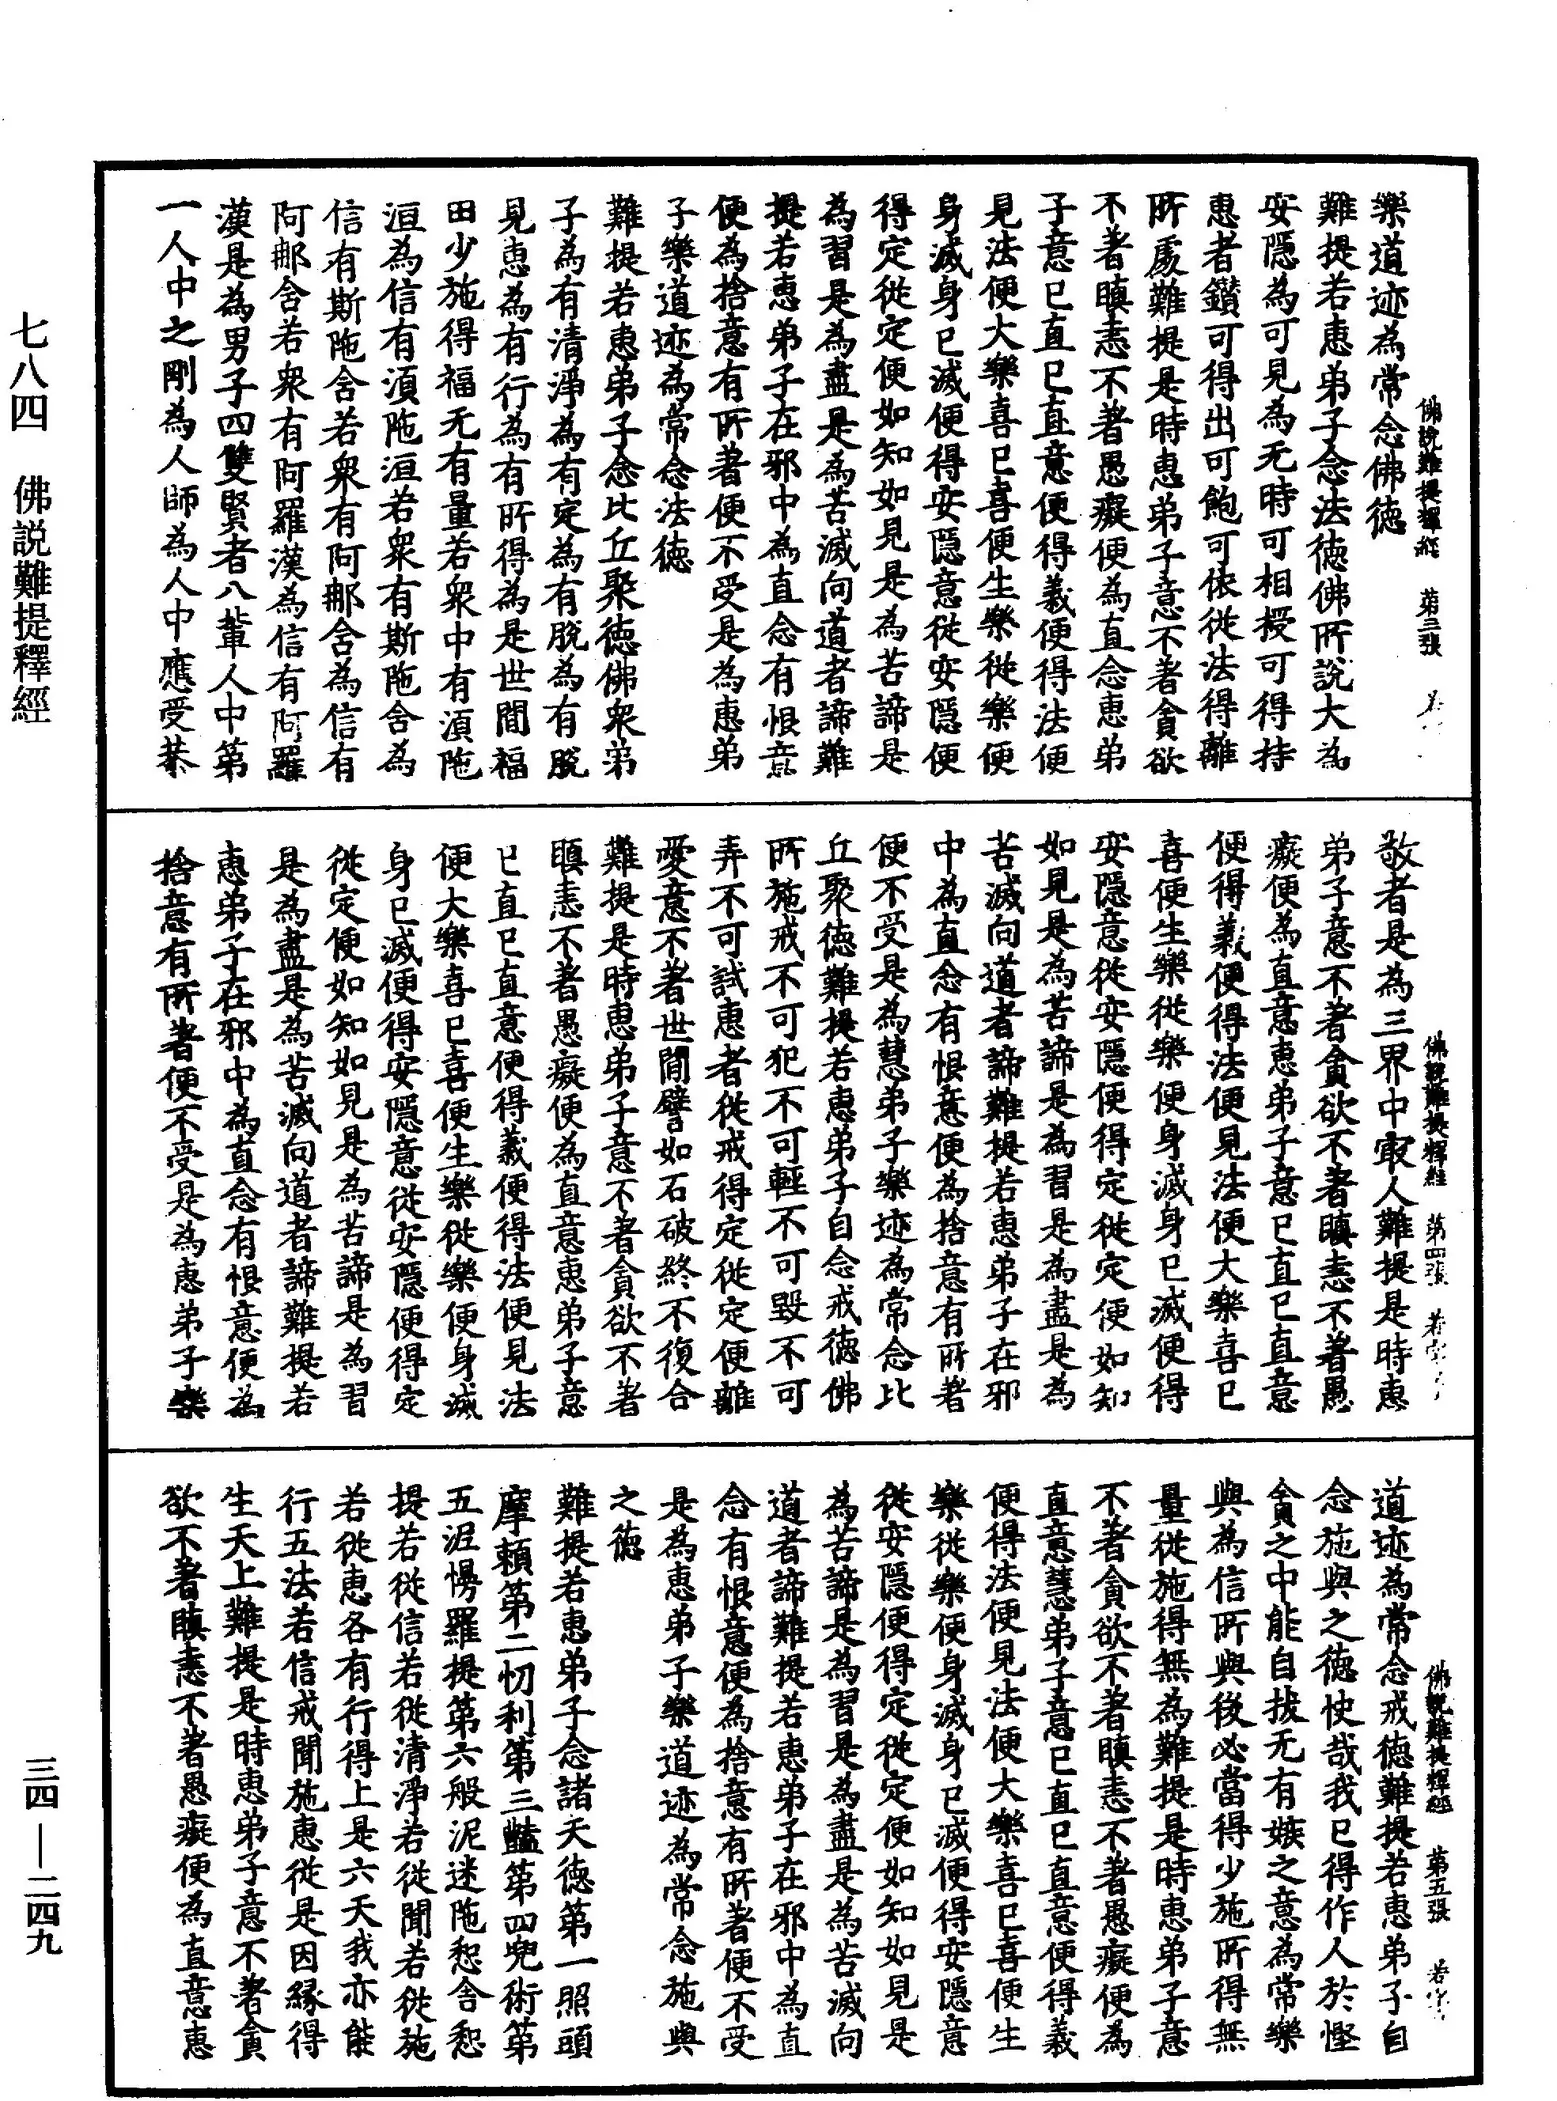 樂道迹為常念佛徳
難提若惠弟子念法徳佛所說大為
安隱為可見為无時可相授可得持
惠者鑚可得出可飽可依從法得離
所處難提是時惠弟子意不著貪欲
不著瞋恚不著愚癡便為直念惠弟
子意已直已直意便得義便得法便
見法便大樂喜已喜便生樂從樂便
身滅身已滅便得安隱意從安隱便
得定從定便如知如見是為苦諦是
為習是為盡是為苦滅向道者諦難
提若惠弟子在邪中為直念有恨意
便為捨意有所著便不受是為惠弟
子樂道迹為常念法徳
難提若惠弟子念比丘聚徳佛衆弟
子為有清淨為有定為有脫為有脫
見惠為有行為有所得為是世間福
田少施得福无有量若衆中有湏陁
洹為信有湏陁洹若衆有斯陁舍為
信有斯陁舍若衆有阿那舍為信有
阿那舍若衆有阿羅漢為信有阿羅
漢是為男子四雙賢者八輩人中第
一人中之剛為人師為人中應受恭
佛說難提釋經　第三張
敬者是為三界中冣人難提是時惠
弟子意不著貪欲不著瞋恚不著愚
癡便為直意惠弟子意已直已直意
便得義便得法便見法便大樂喜已
喜便生樂從樂便身滅身已滅便得
安隱意從安隱便得定從定便如知
如見是為苦諦是為習是為盡是為
苦滅向道者諦難提若惠弟子在邪
中為直念有恨意便為捨意有所著
便不受是為慧弟子樂迹為常念比
丘聚徳難提若惠弟子自念戒徳佛
所施戒不可犯不可輕不可毀不可
弄不可試惠者從戒得定從定便離
愛意不著世間譬如石破終不復合
難提是時惠弟子意不著貪欲不著
瞋恚不著愚癡便為直意惠弟子意
已直已直意便得義便得法便見法
便大樂喜已喜便生樂從樂便身滅
身已滅便得安隱意從安隱便得定
從定便如知如見是為苦諦是為習
是為盡是為苦滅向道者諦難提若
惠弟子在邪中為直念有恨意便為
捨意有所著便不受是為惠弟子樂
佛說難提釋經　第四張
道迹為常念戒徳難提若惠弟子自
念施與之徳快哉我已得作人於慳
貪之中能自拔无有嫉之意為常樂
與為信所與後必當得少施所得無
量從施得無為難提是時惠弟子意
不著貪欲不著瞋恚不著愚癡便為
直意慧弟子意已直已直意便得義
便得法便見法便大樂喜已喜便生
樂從樂便身滅身已滅便得安隱意
從安隱便得定從定便如知如見是
為苦諦是為習是為盡是為苦滅向
道者諦難提若惠弟子在邪中為直
念有恨意便為捨意有所著便不受
是為惠弟子樂道迹為常念施與
之徳
難提若惠弟子念諸天徳第一照頭
摩頼第二忉利第三豔第四兜術第
五泥慢羅提第六般泥迷陁惒舍惒
提若從信若從清淨若從聞若從施
若從惠各有行得上是六天我亦能
行五法若信戒聞施惠從是因緣得
生天上難提是時惠弟子意不著貪
欲不著瞋恚不著愚癡便為直意惠
佛說難提釋經　第五張
七八四　佛説難提釋經
三四—二四九